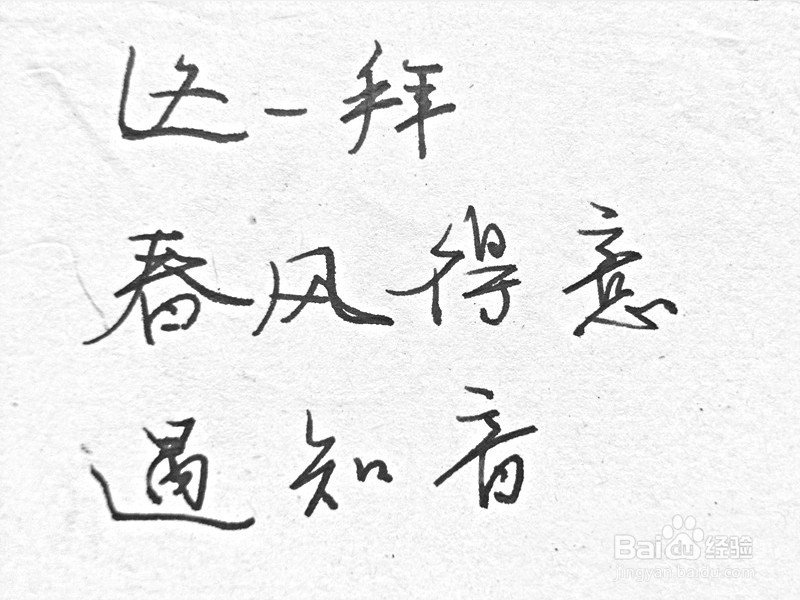 这一拜
春风得意
遇知音
Baidu经验
jingyan.baidu.com